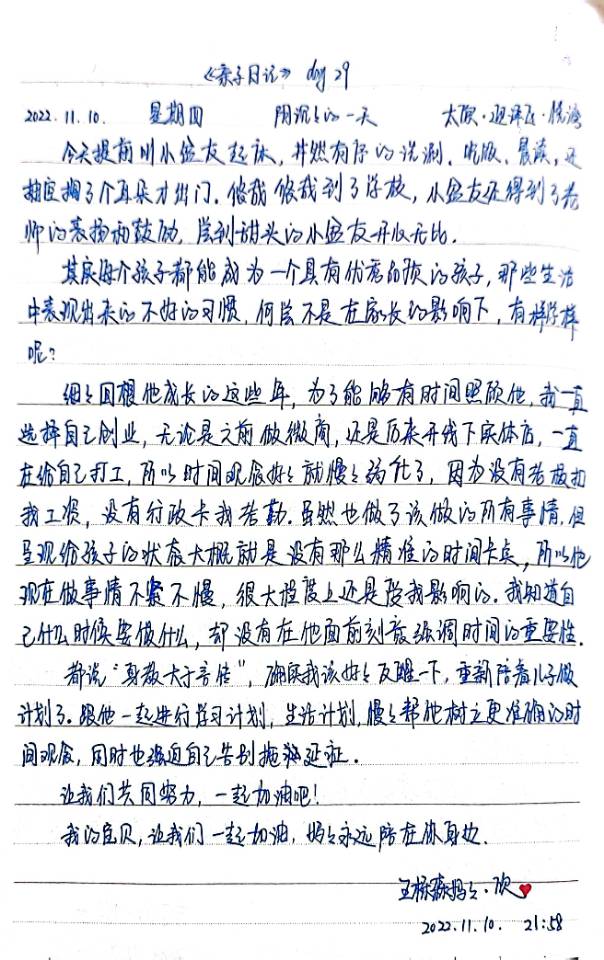 《亲子日记》 day 29
2022.11.10. 星期四 阴沉沉的一天 太原·迎泽区·悦湾
今天提前叫小盆友起床,井然有序的洗漱、吃饭、晨读,还
掏了个耳朵才出门。悠哉悠哉到了学校,小盆友还得到了老
师的表扬和鼓励,尝到甜头的小盆友开心无比.
其实每个孩子都能成为一个具有优秀品质的孩子,那些生活
中表现出来的不好的习惯,何尝不是在家长的影响下,有样学样
呢?
细细回想他成长的这些年,为了能够有时间照顾他,我一直
选择自己创业,无论是之前做微商,还是后来开线下实体店,一直
在给自己打工,所以时间观念好好就慢慢弱化了,因为没有老板扣
我工资,没有行政卡我考勤.虽然也做了该做的所有事情,但
呈现给孩子的状态大概就是没有那么精准的时间卡点,所以他
现在做事情不紧不慢,很大程度上还是受我影响的.我知道自
己什么时候要做什么,却没有在他面前刻意强调时间的重要性.
都说“身教大于言传”,确实我该好好反醒一下,重新陪着儿子做
计划了.跟他一起进行学习计划,生活计划,慢慢帮他树立更准确的时
间观念,同时也强迫自己告别拖拉延症.
让我们共同努力,一起加油吧!
我的宝贝,让我们一起加油,妈妈永远陪在你身边.
王栎森妈妈·欣
2022.11.10. 21:58